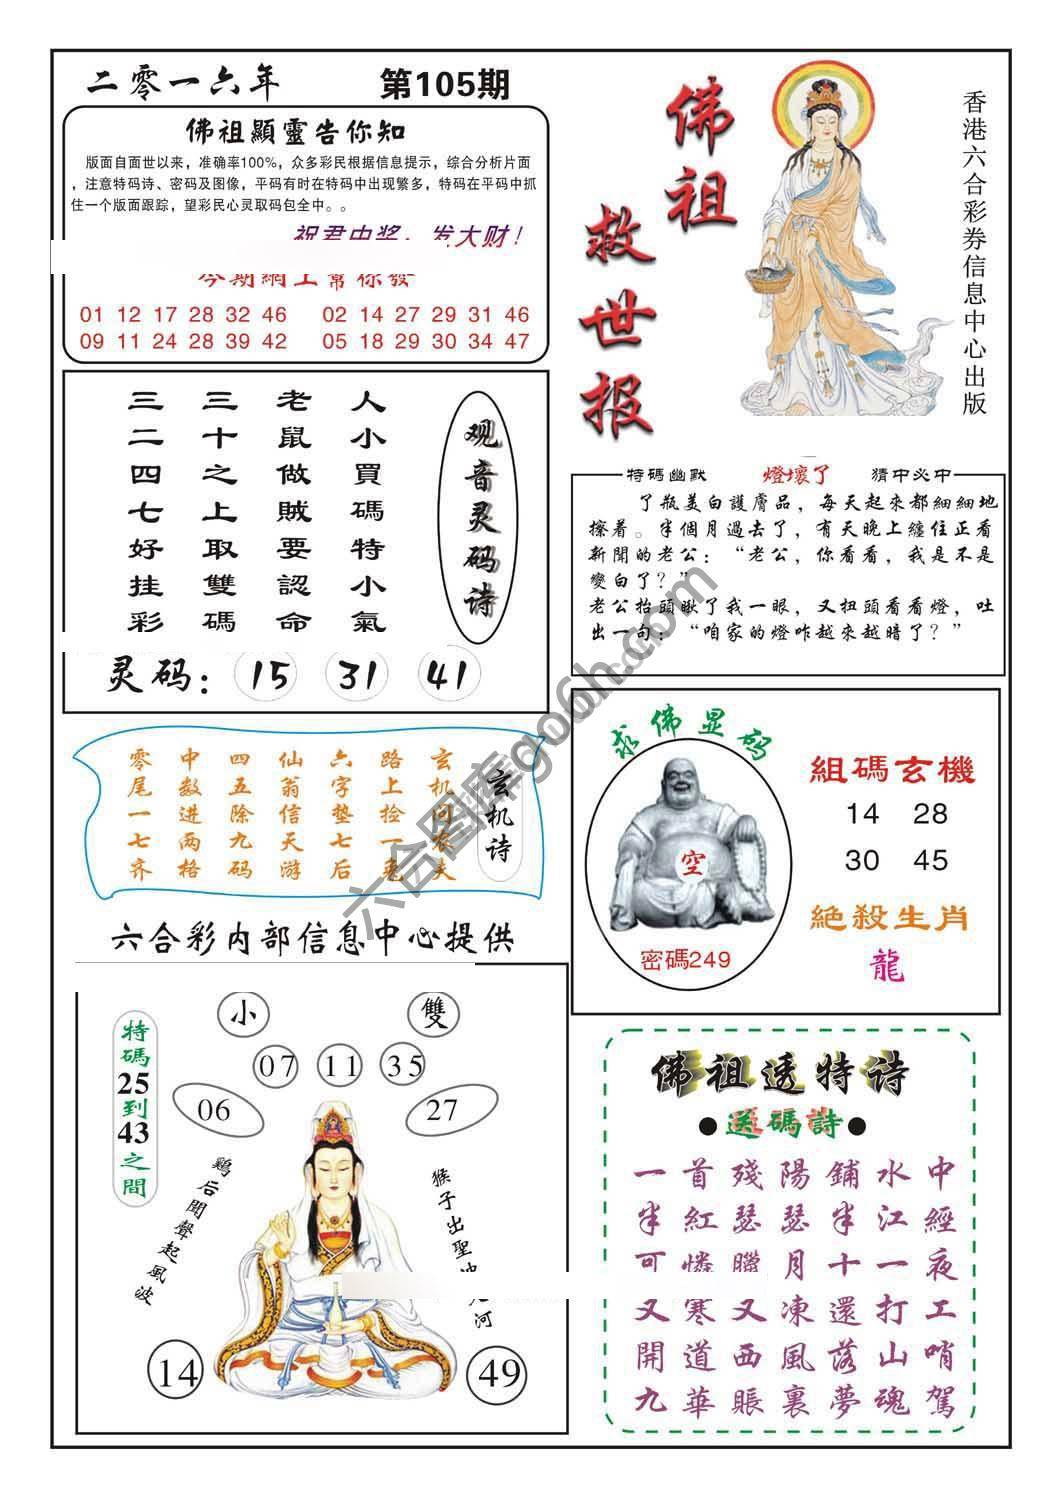 二零一六年 第105期
佛祖顯靈告你知
版面自面世以来，准确率100%，众多彩民根据信息提示，综合分析片面
，注意特码诗、密码及图像，平码有时在特码中出现繁多，特码在平码中抓
住一个版面跟踪，望彩民心灵取码包全中。。
祝君中奖，发大财！
今期網上幫你發
01 12 17 28 32 46 02 14 27 29 31 46
09 11 24 28 39 42 05 18 29 30 34 47
佛祖救世报
香港六合彩券信息中心出版
观音灵码诗
人小買碼特小氣
老鼠做賊要認命
三十之上取雙碼
三二四七好挂彩
灵码： 15 31 41
特碼幽默 燈壞了 猜中必中
了瓶美白護膚品，每天起來都細細地
擦着。半個月過去了，有天晚上纏住正看
新聞的老公：“老公，你看看，我是不是
變白了？”
老公抬頭瞅了我一眼，又扭頭看看燈，吐
出一句：“咱家的燈咋越來越暗了？”
玄机诗
玄机问农夫
路上捡一兔
六字垫七后
仙翁信天游
四五除九码
中数进两格
零尾一七齐
六合彩内部信息中心提供
求佛显码
空
密碼249
組碼玄機
14 28
30 45
絶殺生肖
龍
小 雙
07 11 35
06 27
特碼25到43之間
鷄后聞聲起風波
猴子出聖
河
14 49
佛祖透特诗
●送碼詩●
一首殘陽鋪水中
半紅瑟瑟半江經
可憐臘月十一夜
又寒又凍還打工
開道西風落山哨
九華賬裏夢魂駕
六合图库go6h.com